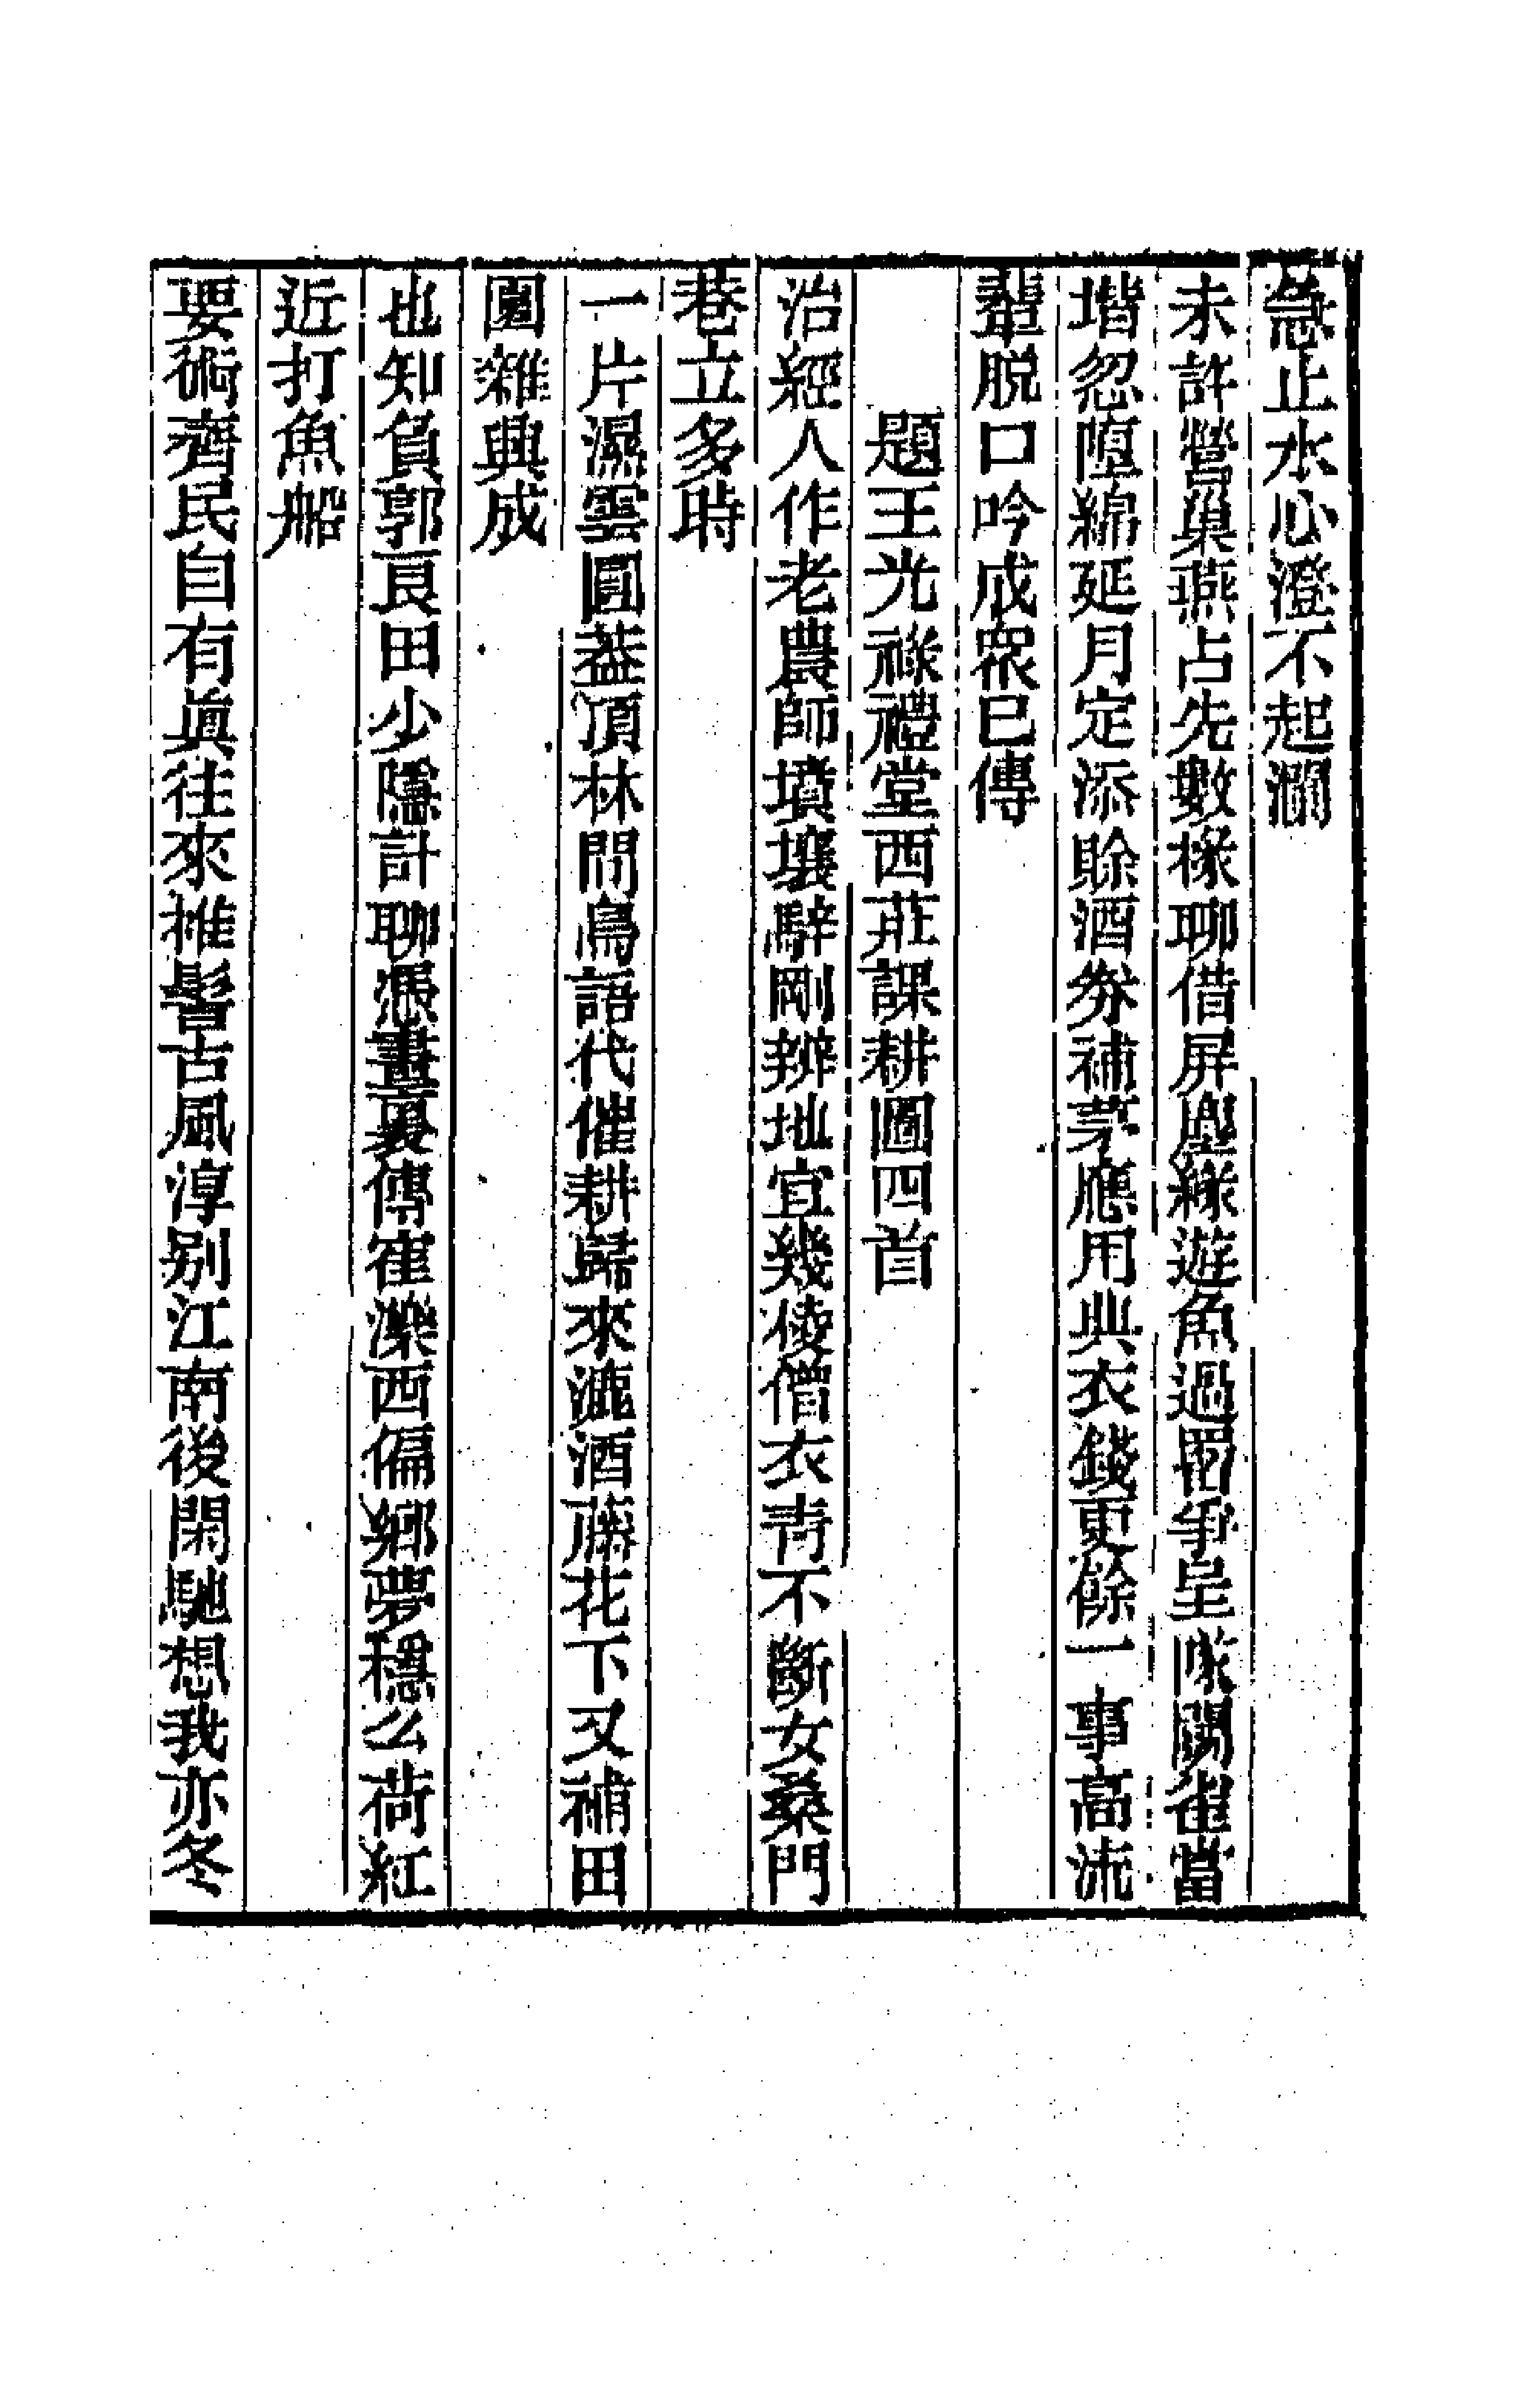 急止水心澄不起瀾
未許營巢燕占先數椽聊借屏塵緣遊魚過罶爭呈隊鬭雀當
堦忽墮綿延月定添賒酒券補茅應用典衣錢更餘一事高流
輩脫口吟成衆已傳
題王光祿禮堂西莊課耕圖四首
治經人作老農師墳壤騂剛辨地宜幾稜僧衣靑不斷女桑門
巷立多時
一片濕雲圓蓋頂林間鳥語代催耕歸來漉酒藤花下又補田
園雜興成
也知負郭良田少隱計聊憑畫裏傳崔濼西偏鄕夢穩么荷紅
近打魚船
要術齊民自有眞往來推髻古風淳別江南後閑馳想我亦冬